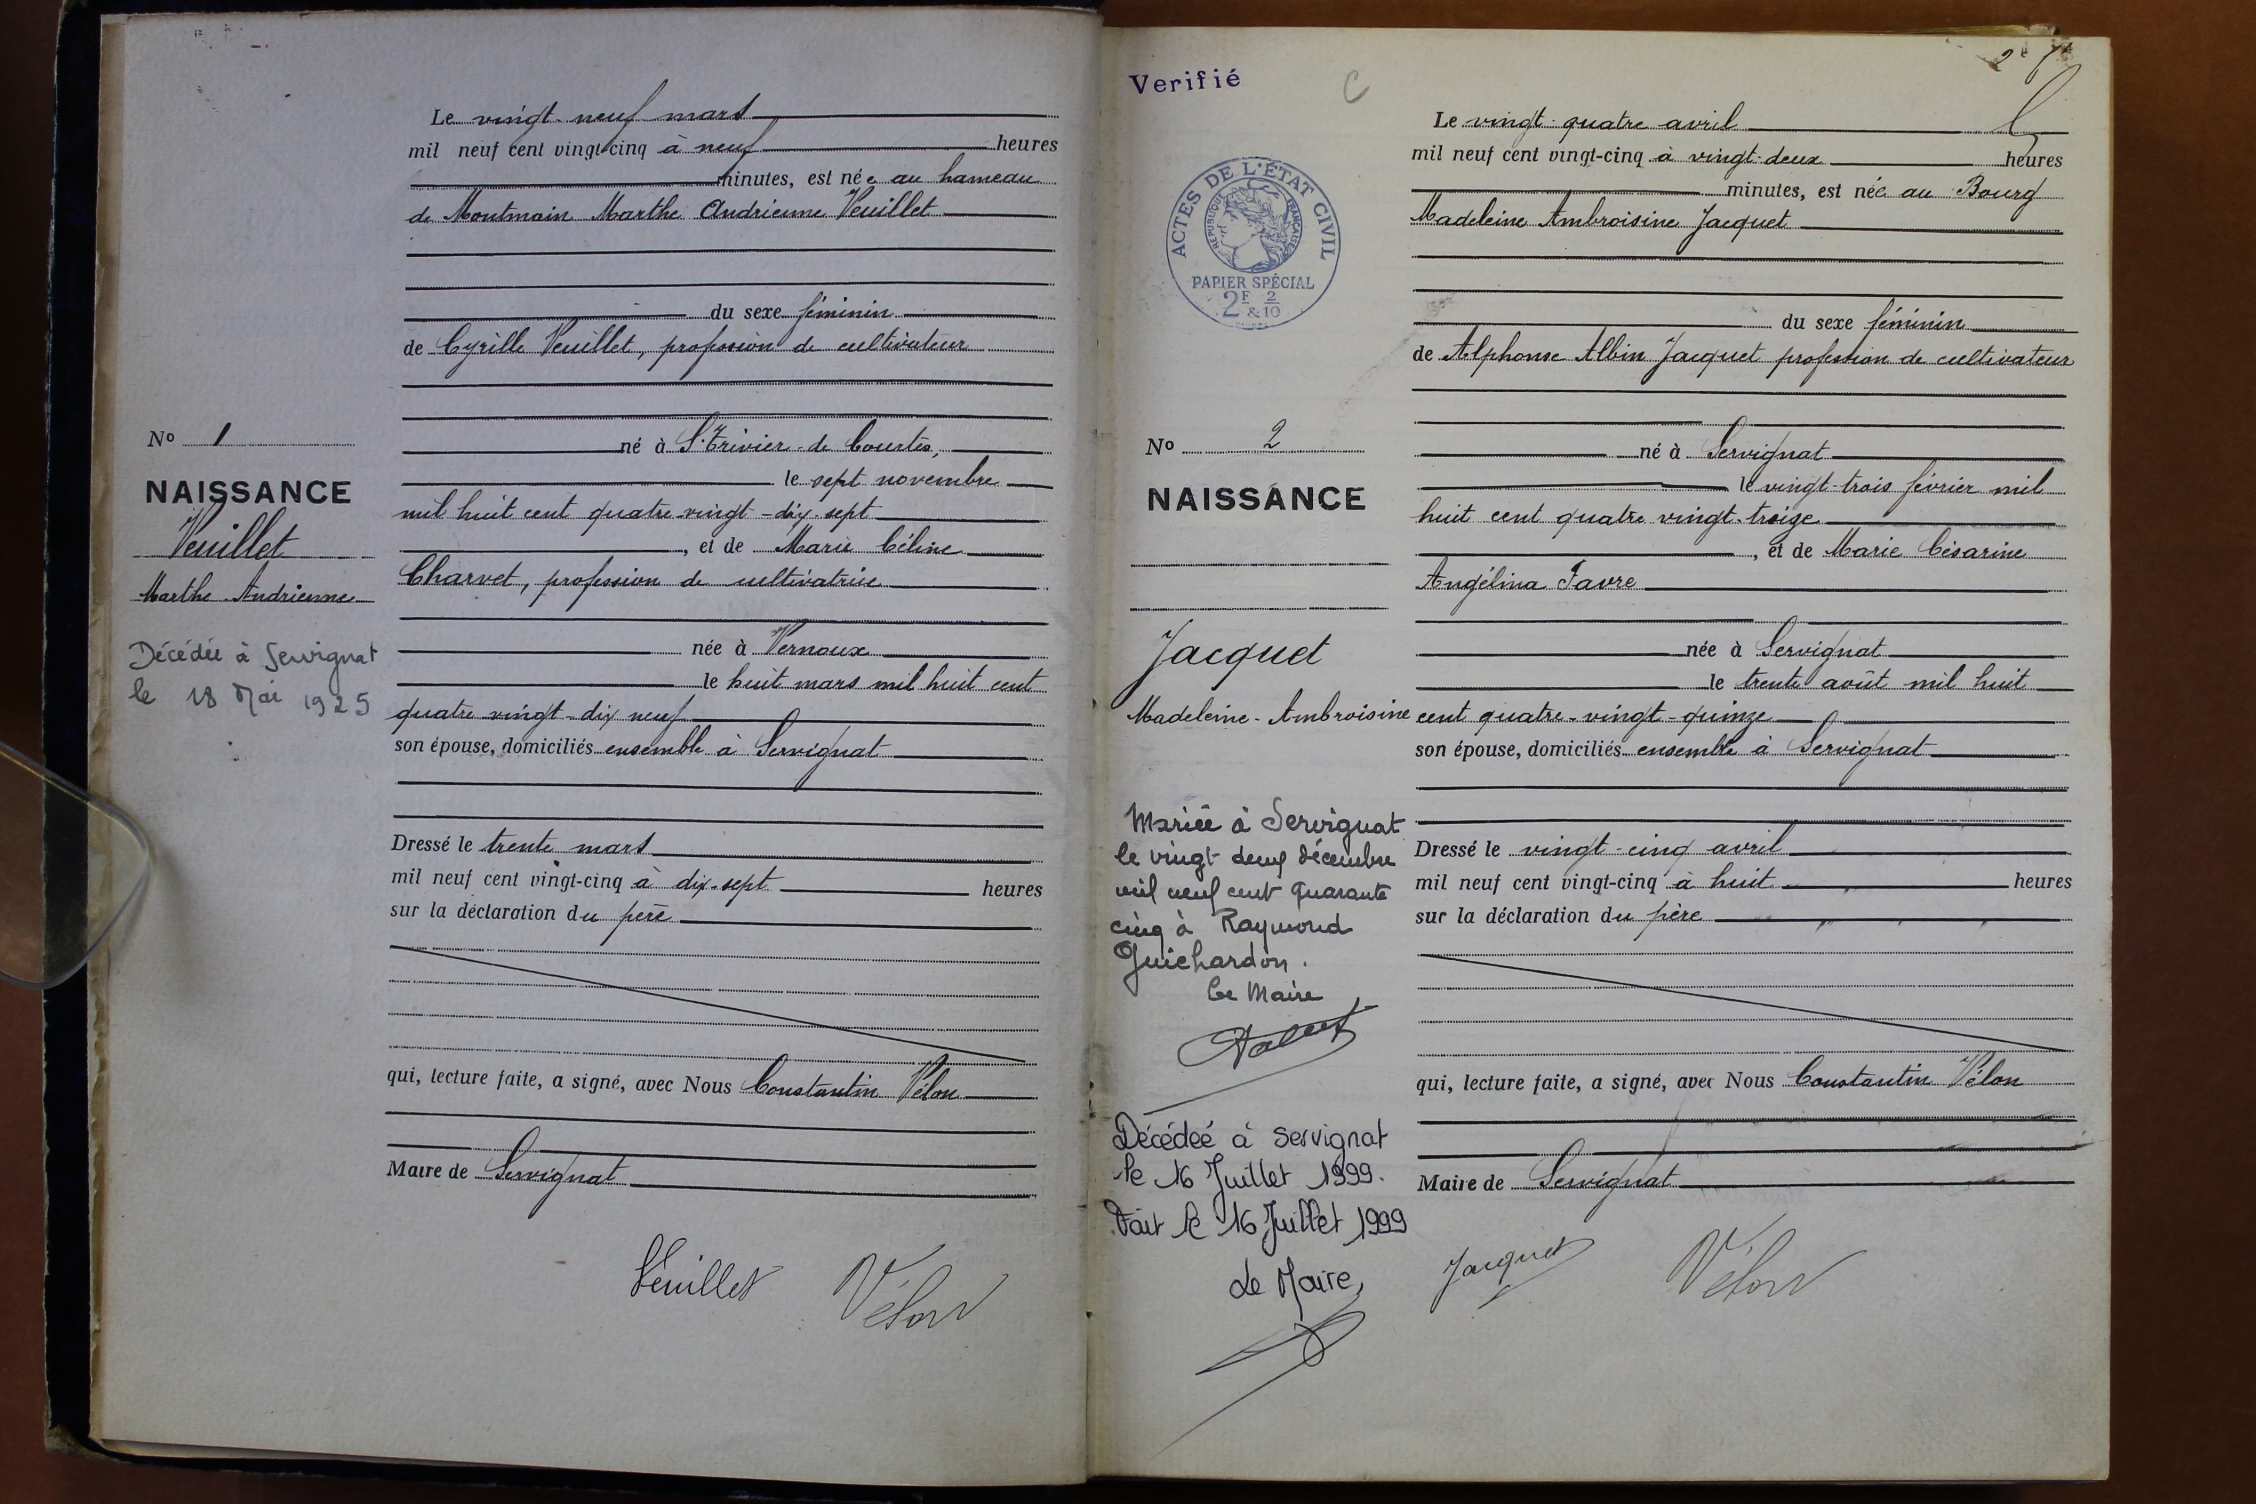 Le vingt-neuf mars
mil neuf cent vingt-cinq à neuf heures
minutes, est née au hameau
de Montmain Marthe Andrienne Veuillet
du sexe féminin
de Cyrille Veuillet, profession de cultivateur
né à St Trivier-de Courtes,
le sept novembre
mil huit cent quatre-vingt-dix sept
, et de Marie Céline
Charvet, profession de cultivatrice
née à Vernoux
le huit mars mil huit cent
quatre vingt-dix neuf
son épouse, domiciliés ensemble à Servignat
Dressé le trente mars
mil neuf cent vingt-cinq à dix-sept heures
sur la déclaration du père
qui, lecture faite, a signé, avec Nous Constantin Vélon
Maire de Servignat
Veuillet Vélon
No 1
NAISSANCE
Veuillet
Marthe Andrienne
Décédée à Servignat
le 18 Mai 1925
Verifié
C
2e
ACTES DE L'ÉTAT CIVIL
RÉPUBLIQUE FRANÇAISE
PAPIER SPÉCIAL
2F 2
& 10
No 2
NAISSANCE
Jacquet
Madeleine-Ambroisine
Mariée à Servignat
le vingt deux décembre
mil neuf cent quarante
cinq à Raymond
Guichardon.
Le Maire
Décédée à Servignat
le 16 Juillet 1999.
Fait le 16 Juillet 1999
Le Maire,
Le vingt-quatre avril
mil neuf cent vingt-cinq à vingt-deux heures
minutes, est née au Bourg
Madeleine Ambroisine Jacquet
du sexe féminin
de Alphonse Albin Jacquet profession de cultivateur
né à Servignat
le vingt-trois février mil
huit cent quatre vingt-treize
, et de Marie Césarine
Angélina Favre
née à Servignat
le trente août mil huit
cent quatre-vingt-quinze
son épouse, domiciliés ensemble à Servignat
Dressé le vingt-cinq avril
mil neuf cent vingt-cinq à huit heures
sur la déclaration du père
qui, lecture faite, a signé, avec Nous Constantin Vélon
Maire de Servignat
Jacquet Vélon